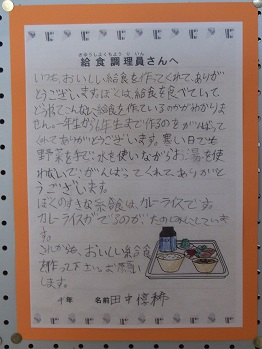 きゅうしょくちょうりいん
給食調理員さんへ
いつも、おいしい給食を作ってくれて、ありが
とうございます。ぼくは、給食を食べていて、
どうやってこんなに給食を作っているのかがわかりま
せん。一年生から六年生まで作るのをがんばって
くれてありがとうございます。寒い日でも
野菜をきて、水を使いながらお湯を使
わないで、がんばってくれて、ありがと
うございます。
ぼくのすきな給食は、カレーライスです。
カレーライスがでるのが、たのしみにしていま
す。
これからも、おいしい給食
を作って下さい。お願い
します。
年 名前 田中